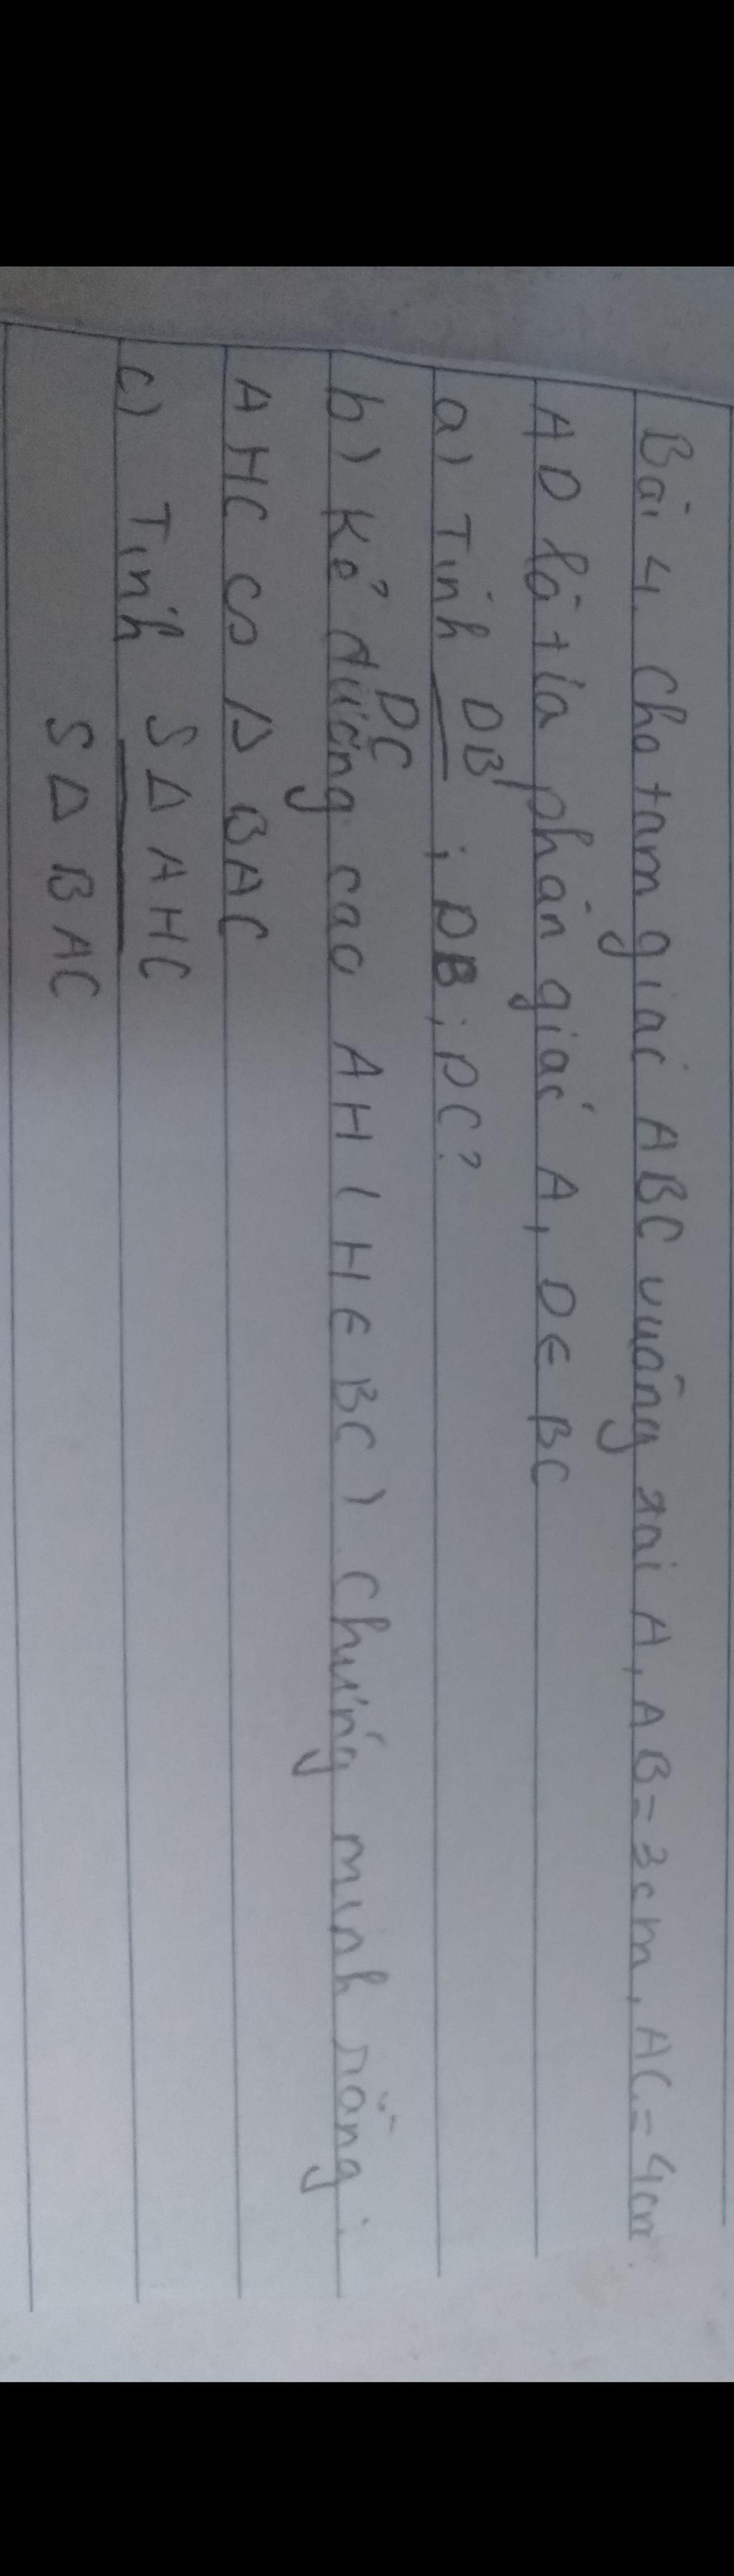 Bài 4. Cho tam giác ABC vuông tại A, AB = 3cm, AC = 4cm.
AD là tia phân giác A, D ∈ BC
a) Tính DB/DC ; DB ; DC?
b) Kẻ đường cao AH (H ∈ BC) chứng minh rằng:
AHC ∽ Δ BAC
c) Tính SΔ AHC
SΔ BAC